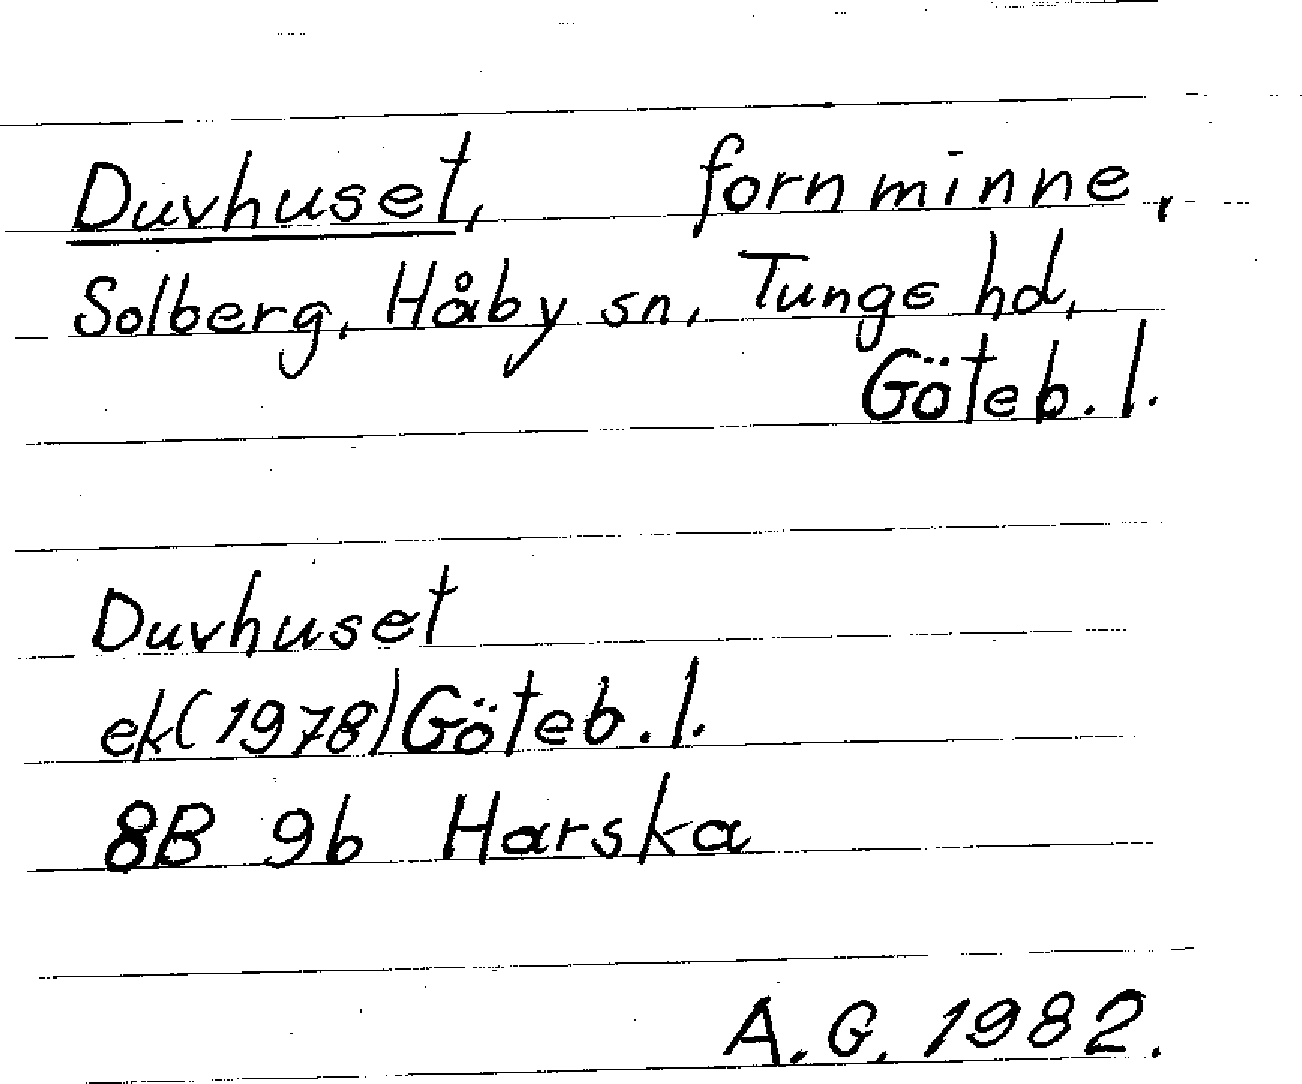 Duvhuset, fornminne,
Solberg, Håby sn, Tunge hd,
Göteb. l.
Duvhuset
ek(1978) Göteb. l.
8B 9b Harska
A. G. 1982.